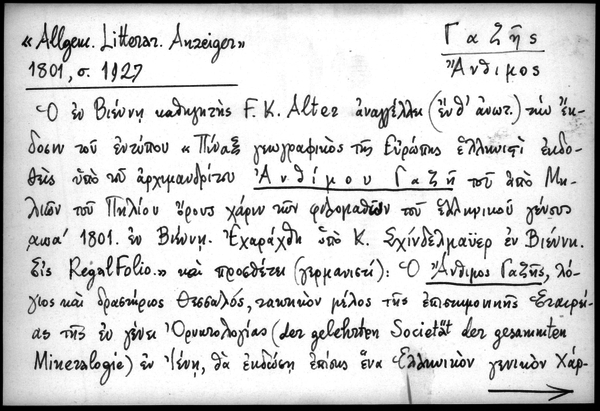 «Allgem. Litterar. Anzeiger»
1801, σ. 1927
Γαζῆς
Ἄνθιμος
Ὁ ἐν Βιέννῃ καθηγητὴς F. K. Alter ἀναγγέλλει (ἔνθ' ἀνωτ.) τὴν ἔκ-
δοσιν τοῦ ἐντύπου «Πίναξ γεωγραφικὸς τῆς Εὐρώπης ἑλληνιστὶ ἐκδο-
θεὶς ὑπὸ τοῦ ἀρχιμανδρίτου Ἀνθίμου Γαζῆ τοῦ ἀπὸ Μη-
λιῶν τοῦ Πηλίου ὄρους χάριν τῶν φιλομαθῶν τοῦ ἑλληνικοῦ γένους
αωα' 1801. ἐν Βιέννῃ. Ἐχαράχθη ὑπὸ K. Σχίνδελμαϋερ ἐν Βιέννῃ.
Εἰς Regal Folio.» καὶ προσθέτει (γερμανιστί): Ὁ Ἄνθιμος Γαζῆς, λό-
γιος καὶ δραστήριος Θεσσαλός, τακτικὸν μέλος τῆς ἐπιστημονικῆς Ἑταιρεί-
ας τῆς ἐν γένει Ὀρυκτολογίας (der gelehrten Societät der gesammten
Mineralogie) ἐν Ἰένῃ, θὰ ἐκδώσῃ ἐπίσης ἕνα Ἑλληνικὸν γενικὸν Χάρ-